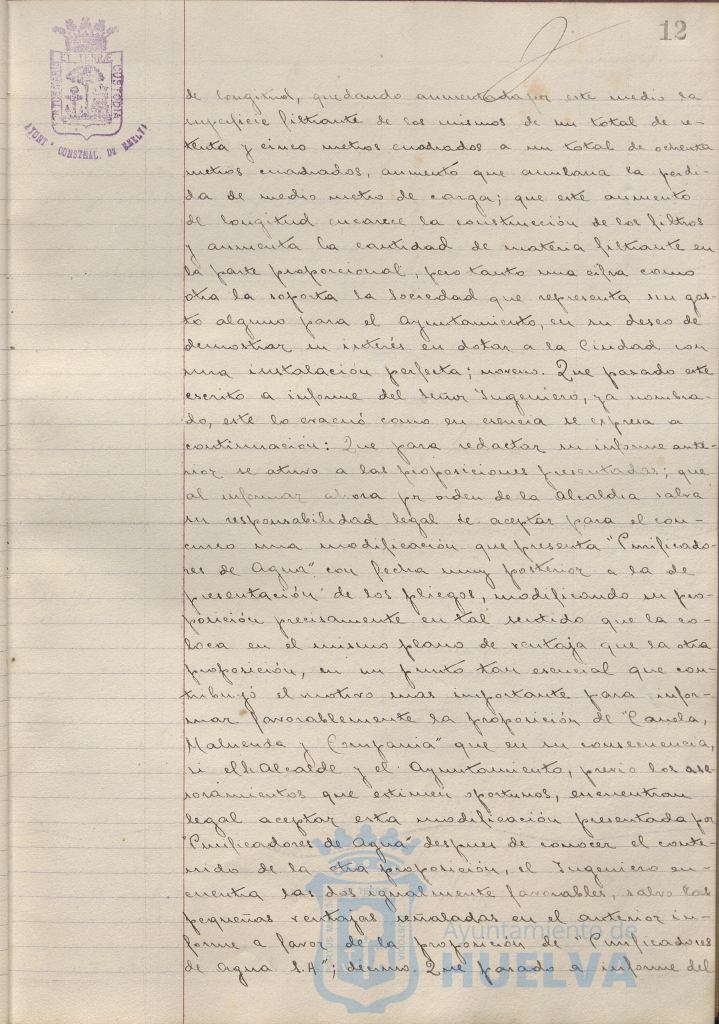 12
PORTUS MARIS ET TERRE CUSTODIA
AYUNT° CONSTNAL. DE HUELVA
de longitud, quedando aumentada por este medio la
superficie filtrante de los mismos de un total de se-
tenta y cinco metros cuadrados a un total de ochenta
metros cuadrados, aumento que anulara la perdi-
da de medio metro de carga; que este aumento
de longitud encarece la construcción de los filtros
y aumenta la cantidad de materia filtrante en
la parte proporcional, pero tanto una cifra como
otra la soporta la Sociedad que representa sin gas-
to alguno para el Ayuntamiento, en su deseo de
demostrar su interés en dotar a la Ciudad con
una instalación perfecta; noveno. Que pasado este
escrito a informe del Señor Ingeniero, ya nombra-
do, este lo evacuó como en esencia se expresa a
continuación: Que para redactar su informe ante-
rior se atuvo a las proposiciones presentadas; que
al informar ahora por orden de la Alcaldia salva
su responsabilidad legal de aceptar para el con-
curso una modificación que presenta "Purificado-
res de Agua" con fecha muy posterior a la de
presentación de los pliegos, modificando su pro-
posición precisamente en tal sentido que la co-
loca en el mismo plano de ventaja que la otra
proposición, en un punto tan esencial que con-
tribuyó el motivo mas importante para infor-
mar favorablemente la proposición de "Canela,
Maluenda y Compania" que en su consecuencia,
si el Alcalde y el Ayuntamiento, previo los ase-
soramientos que estimen oportunos, encuentran
legal aceptar esta modificación presentada por
"Purificadores de Agua" despues de conocer el conte-
nido de la otra proposición, el Ingeniero en-
cuentra las dos igualmente favorables, salvo las
pequeñas ventajas señaladas en el anterior in-
forme a favor de la proposición de "Purificadores
de Agua S.A."; décimo. Que pasado a informe del
Ayuntamiento de
HUELVA